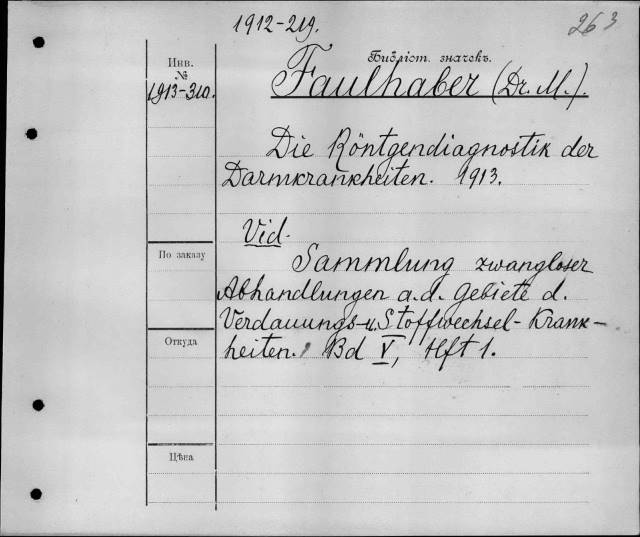 1912-219.
263
Инв.
№
1913-310.
Библіот. значекъ.
Faulhaber (Dr. M.).
Die Röntgendiagnostik der
Darmkrankheiten. 1913.
Vid.
Sammlung zwangloser
Abhandlungen a.d. Gebiete d.
Verdauungs- u. Stoffwechsel-Krank-
heiten. Bd V, Hft 1.
По заказу
Откуда
Цѣна